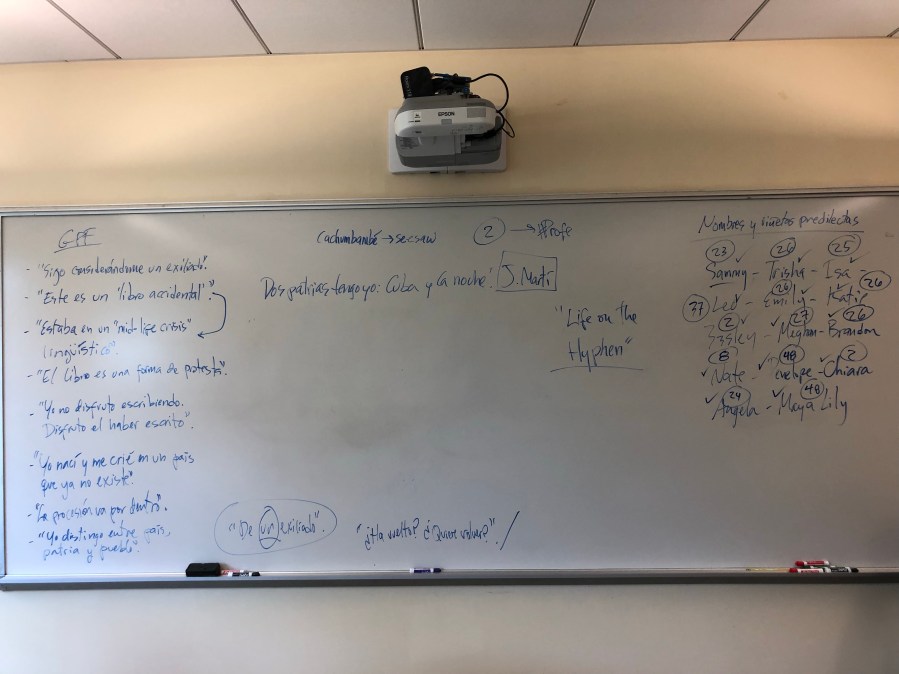 EPSON
GPF
- "Sigo considerándome un exiliado".
- "Este es un 'libro accidental'".
- "Estaba en un "mid-life crisis"
lingüístico".
- "El libro es una forma de protesta".
- "Yo no disfruto escribiendo.
Disfruto el haber escrito".
- "Yo nací y me crié en un país
que ya no existe".
- "La procesión va por dentro".
- "Yo distingo entre país,
patria y pueblo".
cachumbambé → seesaw
2 → Profe
Dos patrias tengo yo: Cuba y la noche! J. Martí
"Life on the
Hyphen"
"De un exiliado".
"¿Ha vuelto? ¿Quiere volver?"
Nombres y viñetas predilectas
23 26 25
Sammy - Trisha - Isa -
37 Leo - 26 Emily - Katie 26
2 27 26
Meghan - Brandon
8 48 2
Nate - Penelope - Chiara
24 48
Angela - Maya Lily